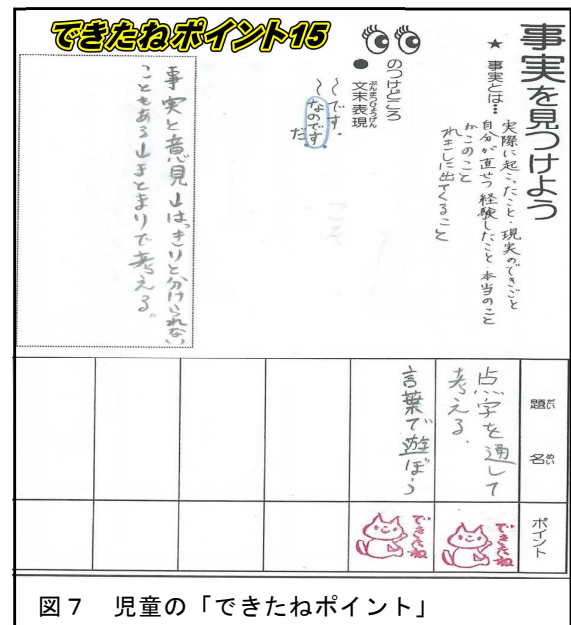 できたねポイント15
事実を見つけよう
★ 事実とは…
実際に起こったこと・現実のできごと
自分が直せつ経験したこと・本当のこと
かこのこと
れきしに出てくること
のつけどころ
● 文末表現
ぶんまつひょうげん
～です。
～なのです。
だ。
事実と意見↓はっきりと分けられない
こともある↓まとまりで考える。
題名
だいめい
ポイント
点字を通して
考える。
できたね
言葉で遊ぼう
できたね
図7 児童の「できたねポイント」